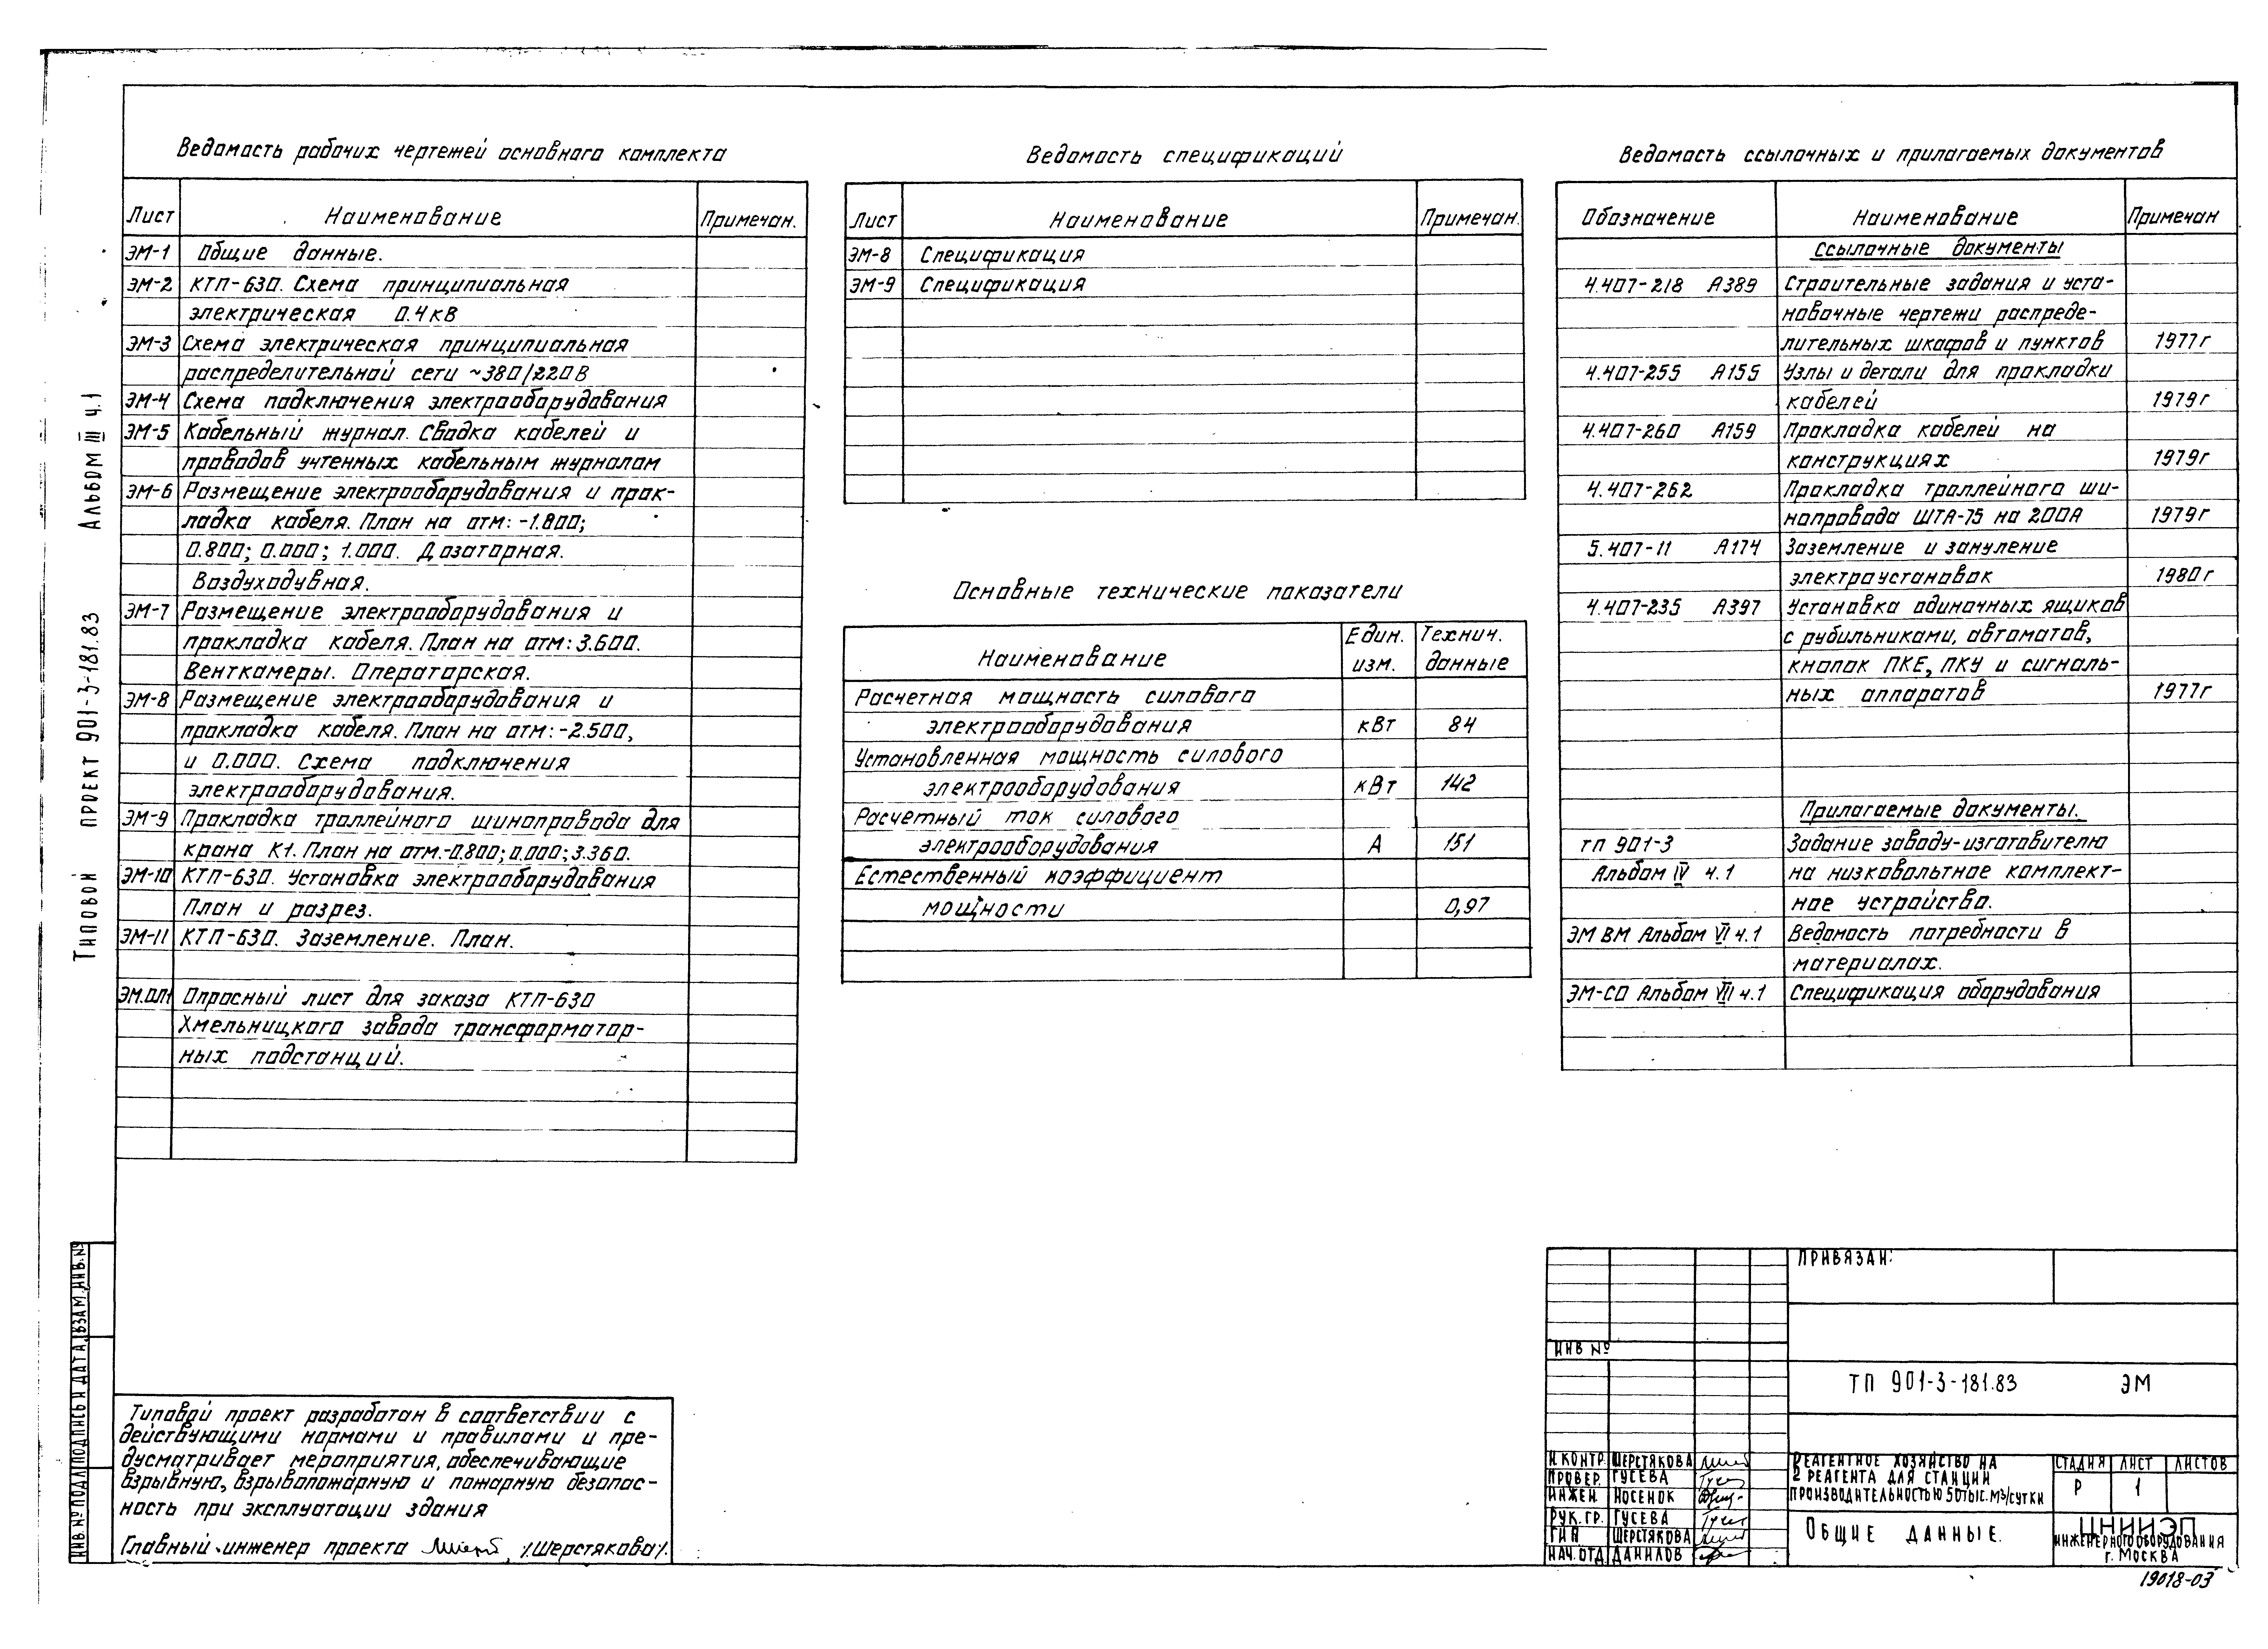 Ведомасть рабочих чертежей основного комплекта
Лист Наименование Примечан.
ЭМ-1 Общие данные.
ЭМ-2 КТП-630. Схема принципиальная
электрическая 0.4кВ
ЭМ-3 Схема электрическая принципиальная
распределительной сети ~380/220В
ЭМ-4 Схема подключения электрооборудования
ЭМ-5 Кабельный журнал. Сводка кабелей и
проводов учтенных кабельным журналом
ЭМ-6 Размещение электрооборудования и прок-
ладка кабеля. План на отм: -1.800;
0.800; 0.000; 1.000. Дозаторная.
Воздуходувная.
ЭМ-7 Размещение электрооборудования и
прокладка кабеля. План на отм: 3.600.
Венткамеры. Операторская.
ЭМ-8 Размещение электрооборудования и
прокладка кабеля. План на отм: -2.500,
и 0.000. Схема подключения
электрооборудования.
ЭМ-9 Прокладка троллейного шинопровода для
крана К1. План на отм.-0.800; 0.000; 3.360.
ЭМ-10 КТП-630. Установка электрооборудования
План и разрез.
ЭМ-11 КТП-630. Заземление. План.
ЭМ.ОЛ1 Опросный лист для заказа КТП-630
Хмельницкого завода трансформатор-
ных подстанций.
Ведомасть спецификаций
Лист Наименование Примечан.
ЭМ-8 Спецификация
ЭМ-9 Спецификация
Основные технические показатели
Наименование Един. изм. Технич. данные
Расчетная мощность силового
электрооборудования кВт 84
Установленная мощность силового
электрооборудования кВт 142
Расчетный ток силового
электрооборудования А 151
Естественный коэффициент
мощности 0,97
Ведомасть ссылочных и прилагаемых документов
Обозначение Наименование Примечан
Ссылочные документы
4.407-218 А389 Строительные задания и уста-
новочные чертежи распреде-
лительных шкафов и пунктов 1977г
4.407-255 А155 Узлы и детали для прокладки
кабелей 1979г
4.407-260 А159 Прокладка кабелей на
конструкциях 1979г
4.407-262 Прокладка троллейного ши-
нопровода ШТА-75 на 200А 1979г
5.407-11 А174 Заземление и зануление
электроустановок 1980г
4.407-235 А397 Установка одиночных ящиков
с рубильниками, автоматов,
кнопок ПКЕ, ПКУ и сигналь-
ных аппаратов 1977г
Прилагаемые документы.
тп 901-3 Задание заводу-изготовителю
Альбом IV ч.1 на низковольтное комплект-
ное устройство.
ЭМ ВМ Альбом VI ч.1 Ведомость потребности в
материалах.
ЭМ-СО Альбом VII ч.1 Спецификация оборудования
Типовой проект 901-3-181.83 Альбом III ч.1
Инв.№ подл. Подпись и дата Взам.инв.№
Типовой проект разработан в соответствии с
действующими нормами и правилами и пре-
дусматривает мероприятия, обеспечивающие
взрывную, взрывопожарную и пожарную безопас-
ность при эксплуатации здания
Главный инженер проекта /Шерстякова/.
Привязан:
Инв №
ТП 901-3-181.83 ЭМ
Н контр. Шерстякова
Провер. Гусева
Инжен. Носенок
Рук. гр. Гусева
ГИП Шерстякова
Нач. отд. Данилов
Реагентное хозяйство на
2 реагента для станции
производительностью 50тыс. м3/сутки
Стадия Лист Листов
Р 1
Общие данные.
ЦНИИЭП
инженерного оборудования
г. Москва
19018-03